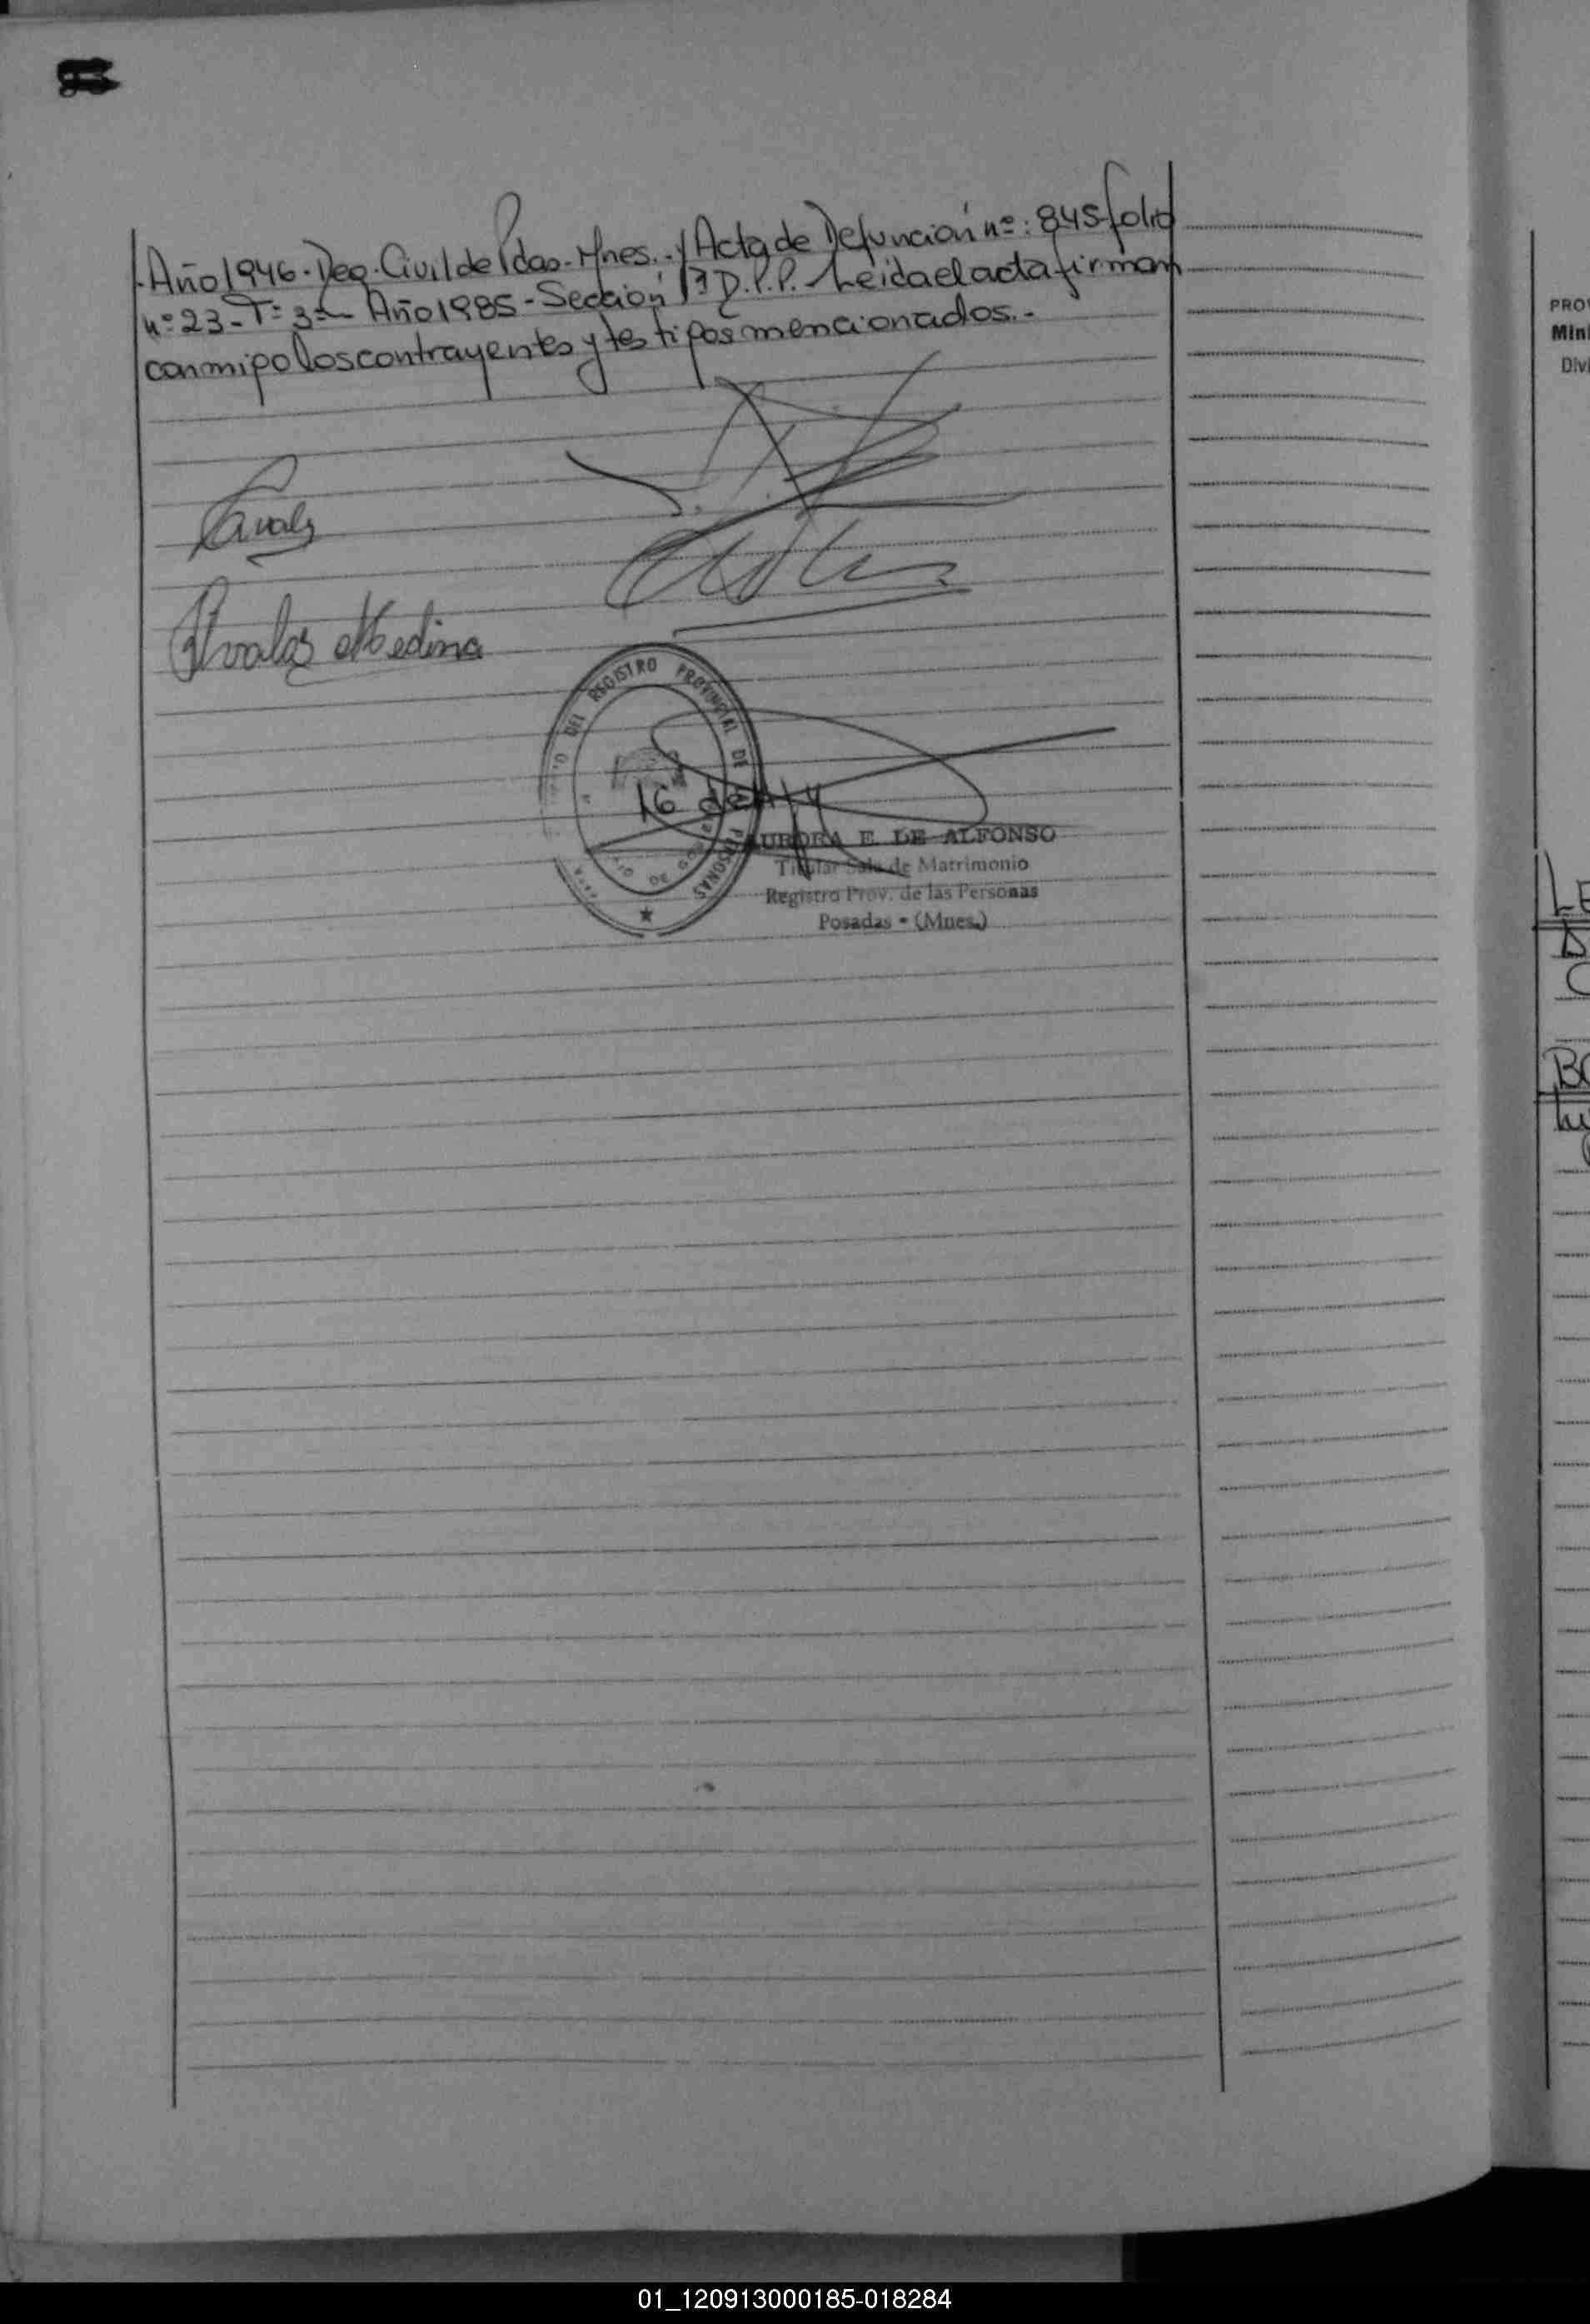 - Año 1946 - Reg. Civil de Pdas - Mnes. - y Acta de Defunción nº: 845 folio
nº 23 - Tº 3º - Año 1985 - Sección 1ª R.P.P. Leida el acta firman
conmigo los contrayentes y testigos mencionados. -
Avalos Medina
DEL REGISTRO PROVINCIAL DE LAS PERSONAS
16
AURORA E. DE ALFONSO
Titular Sala de Matrimonio
Registro Prov. de las Personas
Posadas - (Mnes.)
PRO
Min
Div
LE
BO
01_120913000185-018284